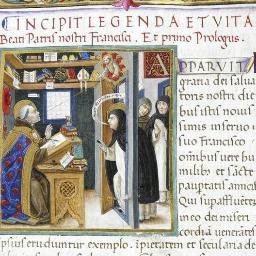 INCIPIT LEGENDA ET VITA
Beati Patris nostri Francisci. Et primo Prologus.
APPARVIT
gratia dei salua
toris nostri die
bus istis nouis
simis in seruo
suo Francisco
omnibus uere hu
milib; et sacte
paupertatis amicis
Qui supaffluente
in eo dei miseri
cordiā uenerātes
ipsius erudiuntur exemplo. ipietatem et secularia de